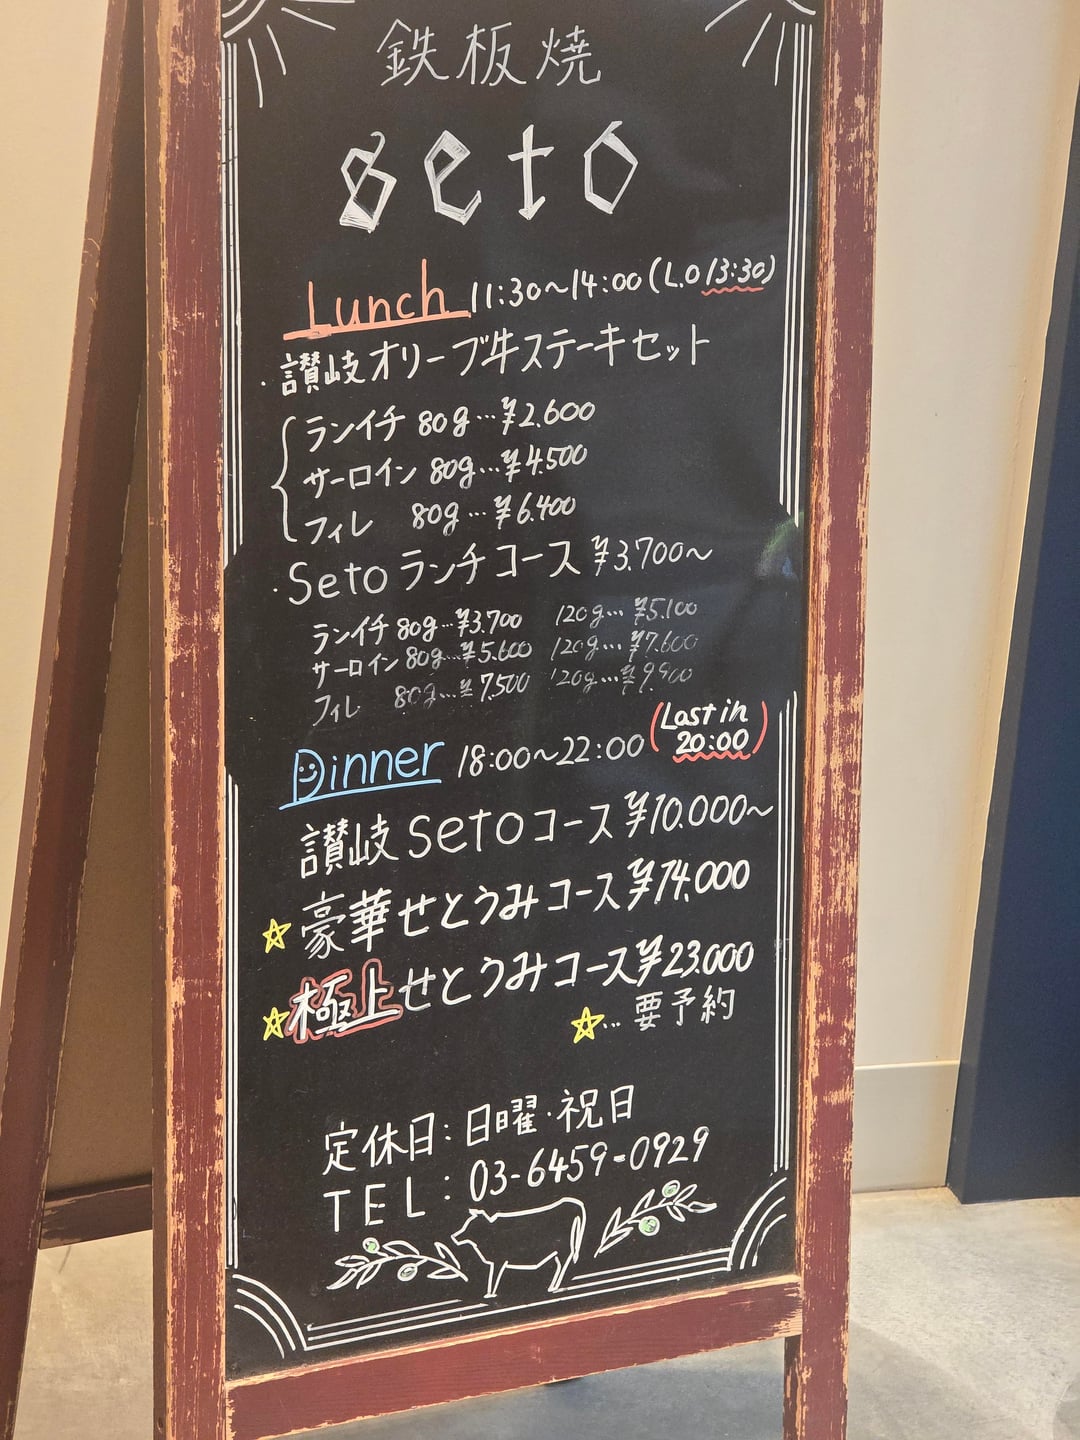 鉄板焼
seto
Lunch 11:30~14:00(L.O 13:30)
・讃岐オリーブ牛ステーキセット
ランイチ 80g…¥2.600
サーロイン 80g…¥4.500
フィレ 80g…¥6.400
・Seto ランチコース ¥3.700~
ランイチ 80g…¥3.700 120g…¥5.100
サーロイン 80g…¥5.600 120g…¥7.600
フィレ 80g…¥7.500 120g…¥9.900
Dinner 18:00~22:00 (Last in 20:00)
讃岐setoコース ¥10.000~
☆豪華せとうみコース¥14.000
☆極上せとうみコース¥23.000
☆…要予約
定休日:日曜・祝日
TEL:03-6459-0929